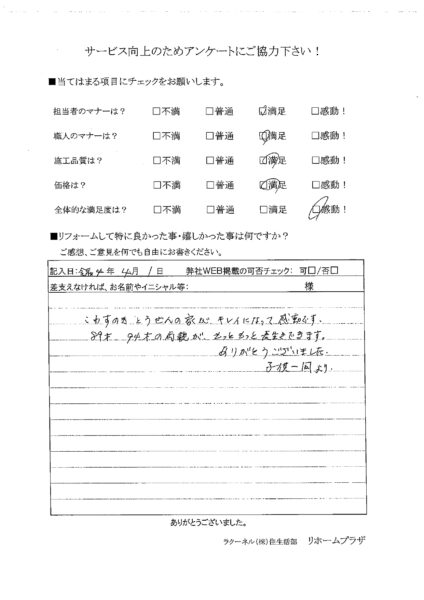 サービス向上のためアンケートにご協力下さい！
■当てはまる項目にチェックをお願いします。
担当者のマナーは？ □不満 □普通 ☑満足 □感動！
職人のマナーは？ □不満 □普通 ☑満足 □感動！
施工品質は？ □不満 □普通 ☑満足 □感動！
価格は？ □不満 □普通 ☑満足 □感動！
全体的な満足度は？ □不満 □普通 □満足 ☑感動！
■リフォームして特に良かった事・嬉しかった事は何ですか？
ご感想、ご意見を何でも自由にお書きください。
記入日：令和4年 4月 1日 弊社WEB掲載の可否チェック： 可□/否□
差支えなければ、お名前やイニシャル等： 様
こわすのもとうぜんの家が、キレイになって感動です。
89才、94才の両親が、もっともっと長生きできます。
ありがとうございました。
子供一同より。
ありがとうございました。
ラクーネル(株)住生活部 リホームプラザ